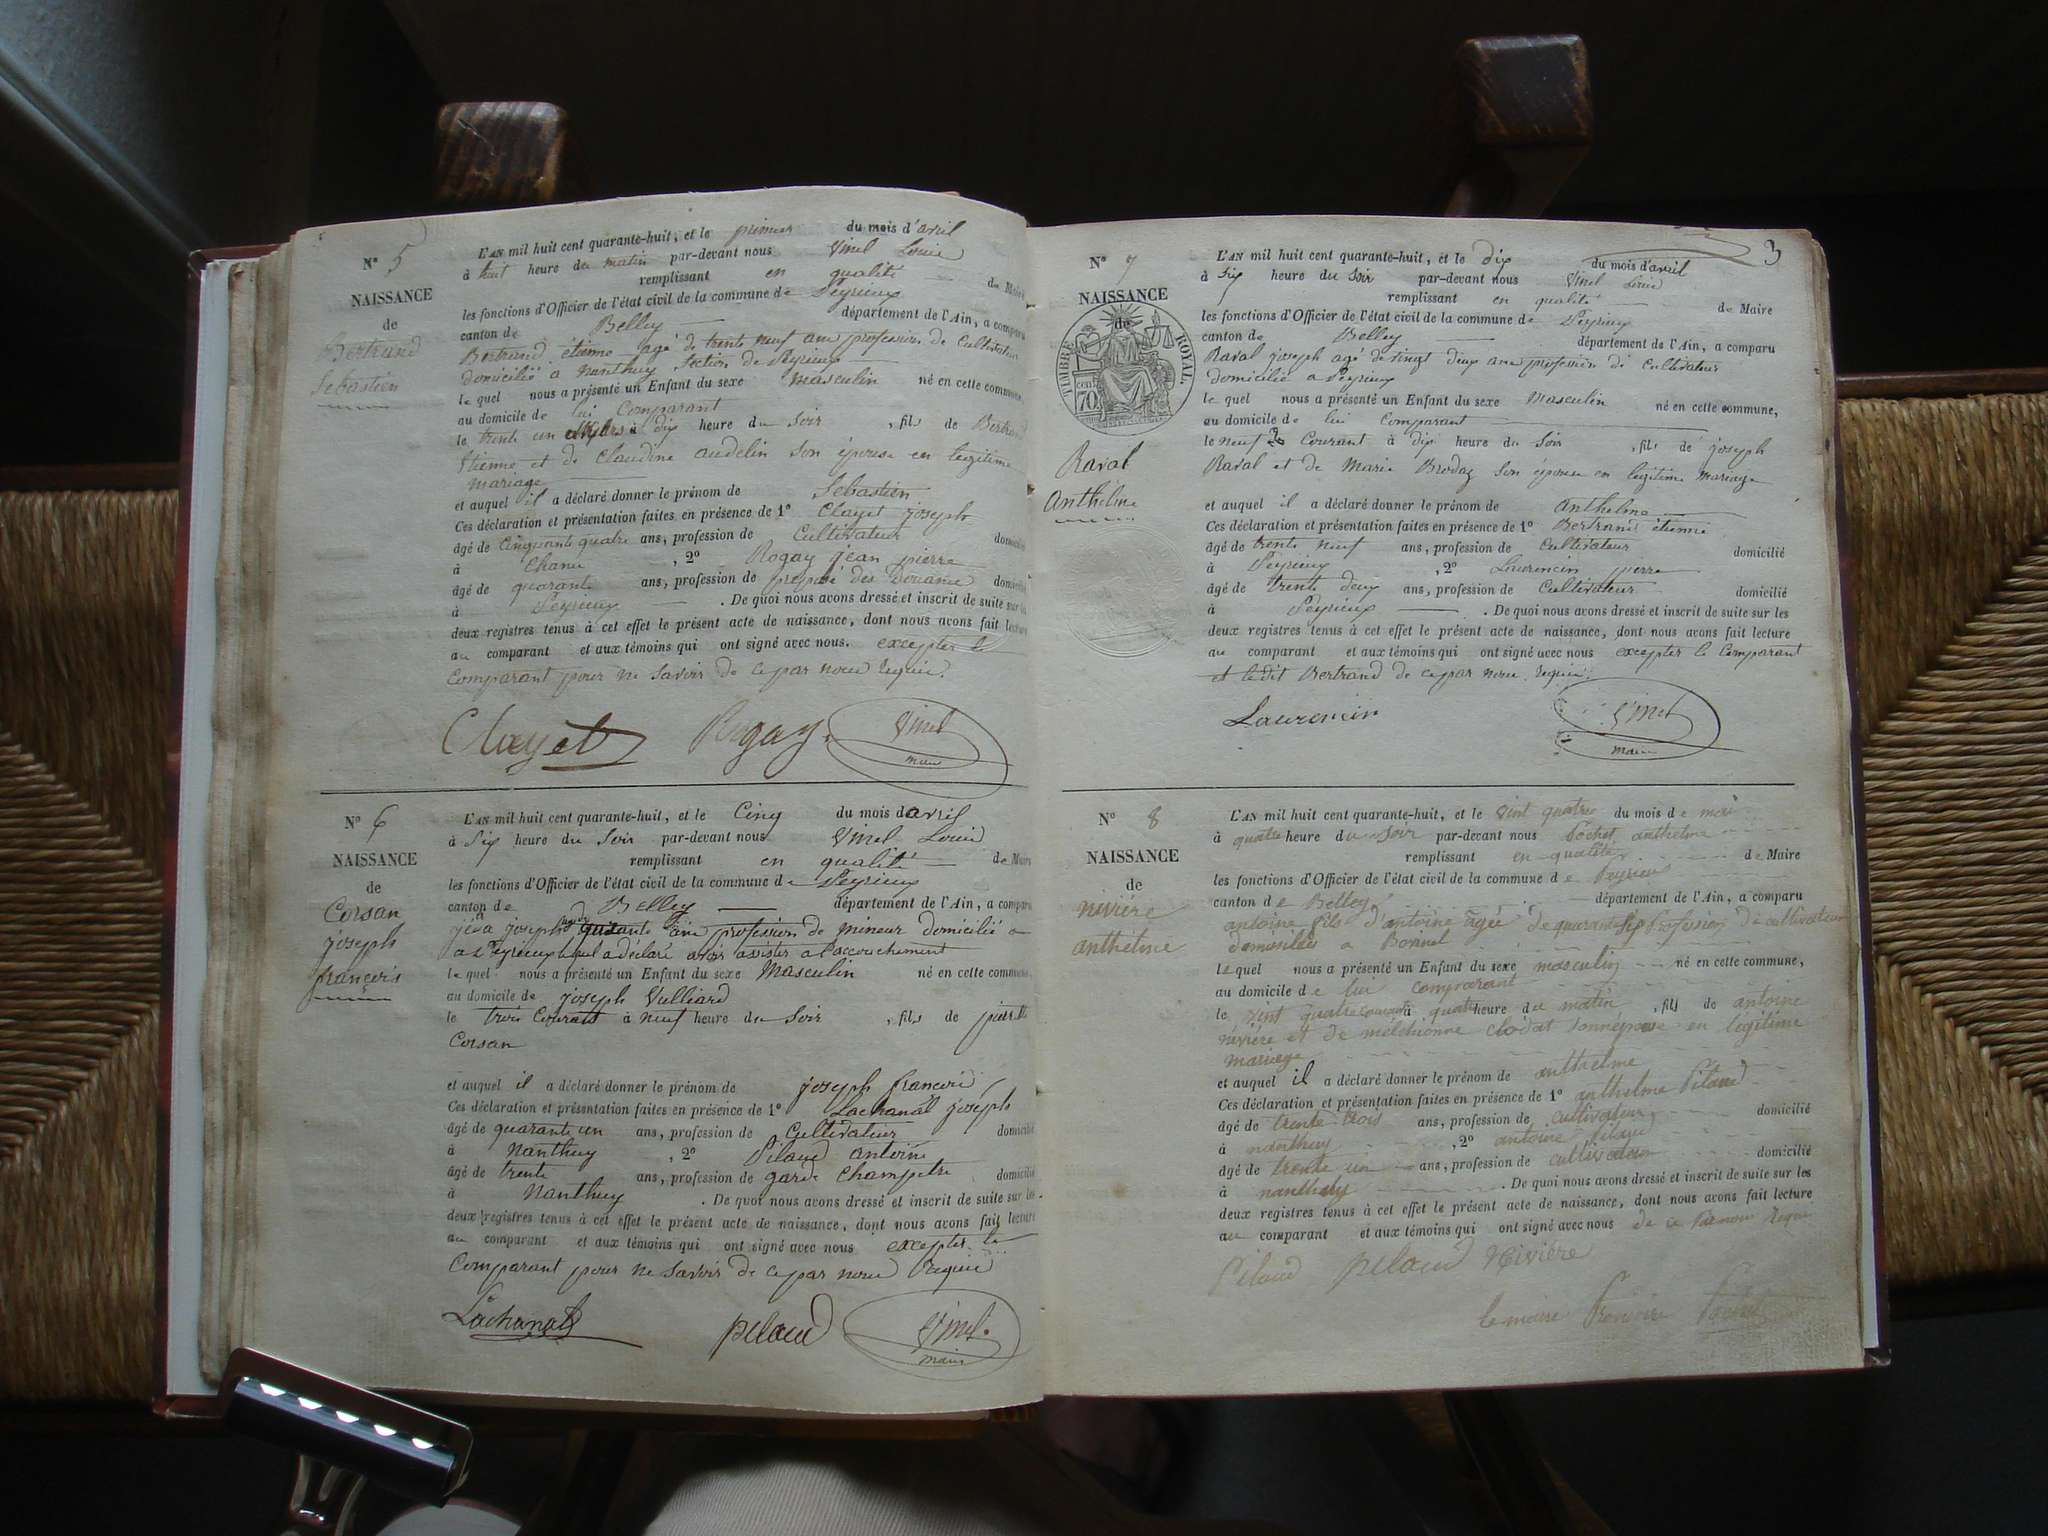 N° 5
NAISSANCE
de
Bertrand
Sebastien
L'AN mil huit cent quarante-huit, et le premier du mois d'avril
à huit heure du matin par-devant nous Vinel Louis
remplissant en qualité de Maire
les fonctions d'Officier de l'état civil de la commune de Peyrieux
canton de Belley département de l'Ain, a comparu
Bertrand étienne agé de trente neuf ans profession de Cultivateur
domicilié a nanthuy Section de Peyrieux
le quel nous a présenté un Enfant du sexe masculin né en cette commune,
au domicile de lui Comparant
le trente un à dix heure du Soir , fils de Bertrand
Etienne et de Claudine audelin Son épouse en legitime
mariage
et auquel il a déclaré donner le prénom de Sebastien
Ces déclaration et présentation faites en présence de 1° Clayet joseph
âgé de Cinquante quatre ans, profession de Cultivateur domicilié
à Chanu , 2° Rogay jean pierre
âgé de quarante ans, profession de préposé des Douane domicilié
à Peyrieux . De quoi nous avons dressé et inscrit de suite sur les
deux registres tenus à cet effet le présent acte de naissance, dont nous avons fait lecture
au comparant et aux témoins qui ont signé avec nous. excepter le
Comparant pour ne Savoir de ce par nous requis.
Clayet Rogay Vinel
maire
N° 6
NAISSANCE
de
Corsan
joseph
françois
L'AN mil huit cent quarante-huit, et le Cinq du mois d'avril
à Six heure du Soir par-devant nous Vinel Louis
remplissant en qualité de Maire
les fonctions d'Officier de l'état civil de la commune de Peyrieux
canton de Belley département de l'Ain, a comparu
joseph ans profession de mineur domicilié
a Peyrieux lequel a déclaré avoir assister a l'accouchement
le quel nous a présenté un Enfant du sexe Masculin né en cette commune
au domicile de joseph Vulliard
le trois Courant à neuf heure du Soir , fils de pierre
Corsan
et auquel il a déclaré donner le prénom de joseph françois
Ces déclaration et présentation faites en présence de 1° Lachanal joseph
âgé de quarante un ans, profession de Cultivateur domicilié
à Nanthuy , 2° Pilaud antoine
âgé de trente ans, profession de garde Champetre domicilié
à Nanthuy . De quoi nous avons dressé et inscrit de suite sur les
deux registres tenus à cet effet le présent acte de naissance, dont nous avons fait lecture
au comparant et aux témoins qui ont signé avec nous excepter le
Comparant pour ne Savoir de ce par nous Requis
Lachanal pilaud Vinel
maire
3
N° 7
NAISSANCE
de
TIMBRE ROYAL
cent 70
Raval
Anthelme
L'AN mil huit cent quarante-huit, et le dix du mois d'avril
à Six heure du Soir par-devant nous Vinel Louis
remplissant en qualité de Maire
les fonctions d'Officier de l'état civil de la commune de Peyrieux
canton de Belley département de l'Ain, a comparu
Raval joseph agé de Vingt deux ans profession de Cultivateur
domicilié a Peyrieux
le quel nous a présenté un Enfant du sexe Masculin né en cette commune,
au domicile de lui Comparant
le neuf Courant à dix heure du Soir , fils de joseph
Raval et de Marie Brodaz Son épouse en légitime mariage
et auquel il a déclaré donner le prénom de Anthelme
Ces déclaration et présentation faites en présence de 1° Bertrand étienne
âgé de trente neuf ans, profession de Cultivateur domicilié
à Peyrieux , 2° Laurencin pierre
âgé de trente deux ans, profession de Cultivateur domicilié
à Peyrieux . De quoi nous avons dressé et inscrit de suite sur les
deux registres tenus à cet effet le présent acte de naissance, dont nous avons fait lecture
au comparant et aux témoins qui ont signé avec nous excepter le Comparant
et ledit Bertrand de ce par nous requis.
Laurencin Vinel
maire
N° 8
NAISSANCE
de
nivière
anthelme
L'AN mil huit cent quarante-huit, et le vint quatre du mois de mai
à quatre heure du soir par-devant nous Pochet anthelme
remplissant en qualité de Maire
les fonctions d'Officier de l'état civil de la commune de Peyrieu
canton de Belley département de l'Ain, a comparu
antoine fils d'antoine agée de quarante six profession de cultivateur
domicilés a Bonnel
le quel nous a présenté un Enfant du sexe masculin né en cette commune,
au domicile de lui comparant
le vint quatre courant à quatre heure du matin , fils de antoine
nivière et de melchionne clodat sonnépouse en légitime
mariage
et auquel il a déclaré donner le prénom de anthelme
Ces déclaration et présentation faites en présence de 1° anthelme Pilaud
âgé de trente trois ans, profession de cultivateur domicilié
à nanthuy , 2° antoine Pilaud
âgé de trente un ans, profession de cultivateur domicilié
à nanthuy . De quoi nous avons dressé et inscrit de suite sur les
deux registres tenus à cet effet le présent acte de naissance, dont nous avons fait lecture
au comparant et aux témoins qui ont signé avec nous de ce parnous requi
Pilaud pilaud Nivière
le maire Provoire Pochet